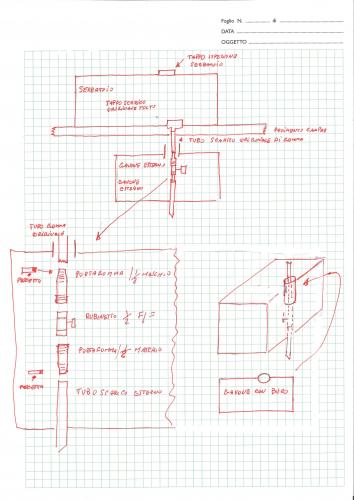 Foglio N. 4
DATA
OGGETTO
TAPPO ISPEZIONE
SERBATOIO
SERBATOIO
TAPPO SCARICO
ORIGINALE TOLTO
PAVIMENTO CAMPER
TUBO SCARICO ORIGINALE DI GOMMA
GAVONE ESTERNO
GAVONE
ESTERNO
TUBO GOMMA
ORIGINALE
FASCETTA
PORTAGOMMA 1/2 MASCHIO
RUBINETTO 1/2 F/F
PORTAGOMMA 1/2 MASCHIO
FASCETTA
TUBO SCARICO ESTERNO
GAVONE CON BUCO